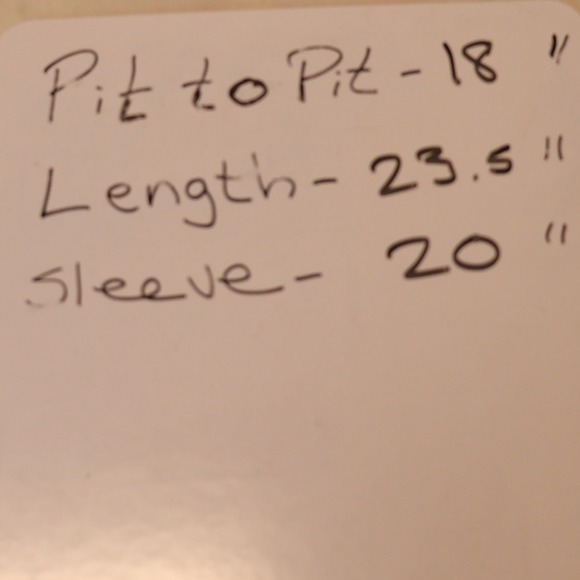 Pit to Pit - 18 "
Length - 23.5 "
Sleeve - 20 "